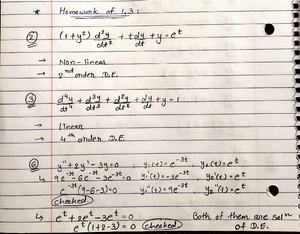 * Homework of 1.3:
② (1+y²) d²y/dt² + t dy/dt + y = eᵗ
→ Non-linear
→ 2nd order D.E.
③ d⁴y/dt⁴ + d³y/dt³ + d²y/dt² + dy/dt + y = 1
→ Linear
→ 4th order D.E.
⑥ y'' + 2y' - 3y = 0 ; y₁(t) = e⁻³ᵗ , y₂(t) = eᵗ
↳ 9e⁻³ᵗ - 6e⁻³ᵗ - 3e⁻³ᵗ = 0 y₁'(t) = -3e⁻³ᵗ y₂'(t) = eᵗ
e⁻³ᵗ(9-6-3) = 0 y₁''(t) = 9e⁻³ᵗ y₂''(t) = eᵗ
checked
↳ eᵗ + 2eᵗ - 3eᵗ = 0 Both of them are solⁿ
eᵗ(1+2-3) = 0 checked of D.E.